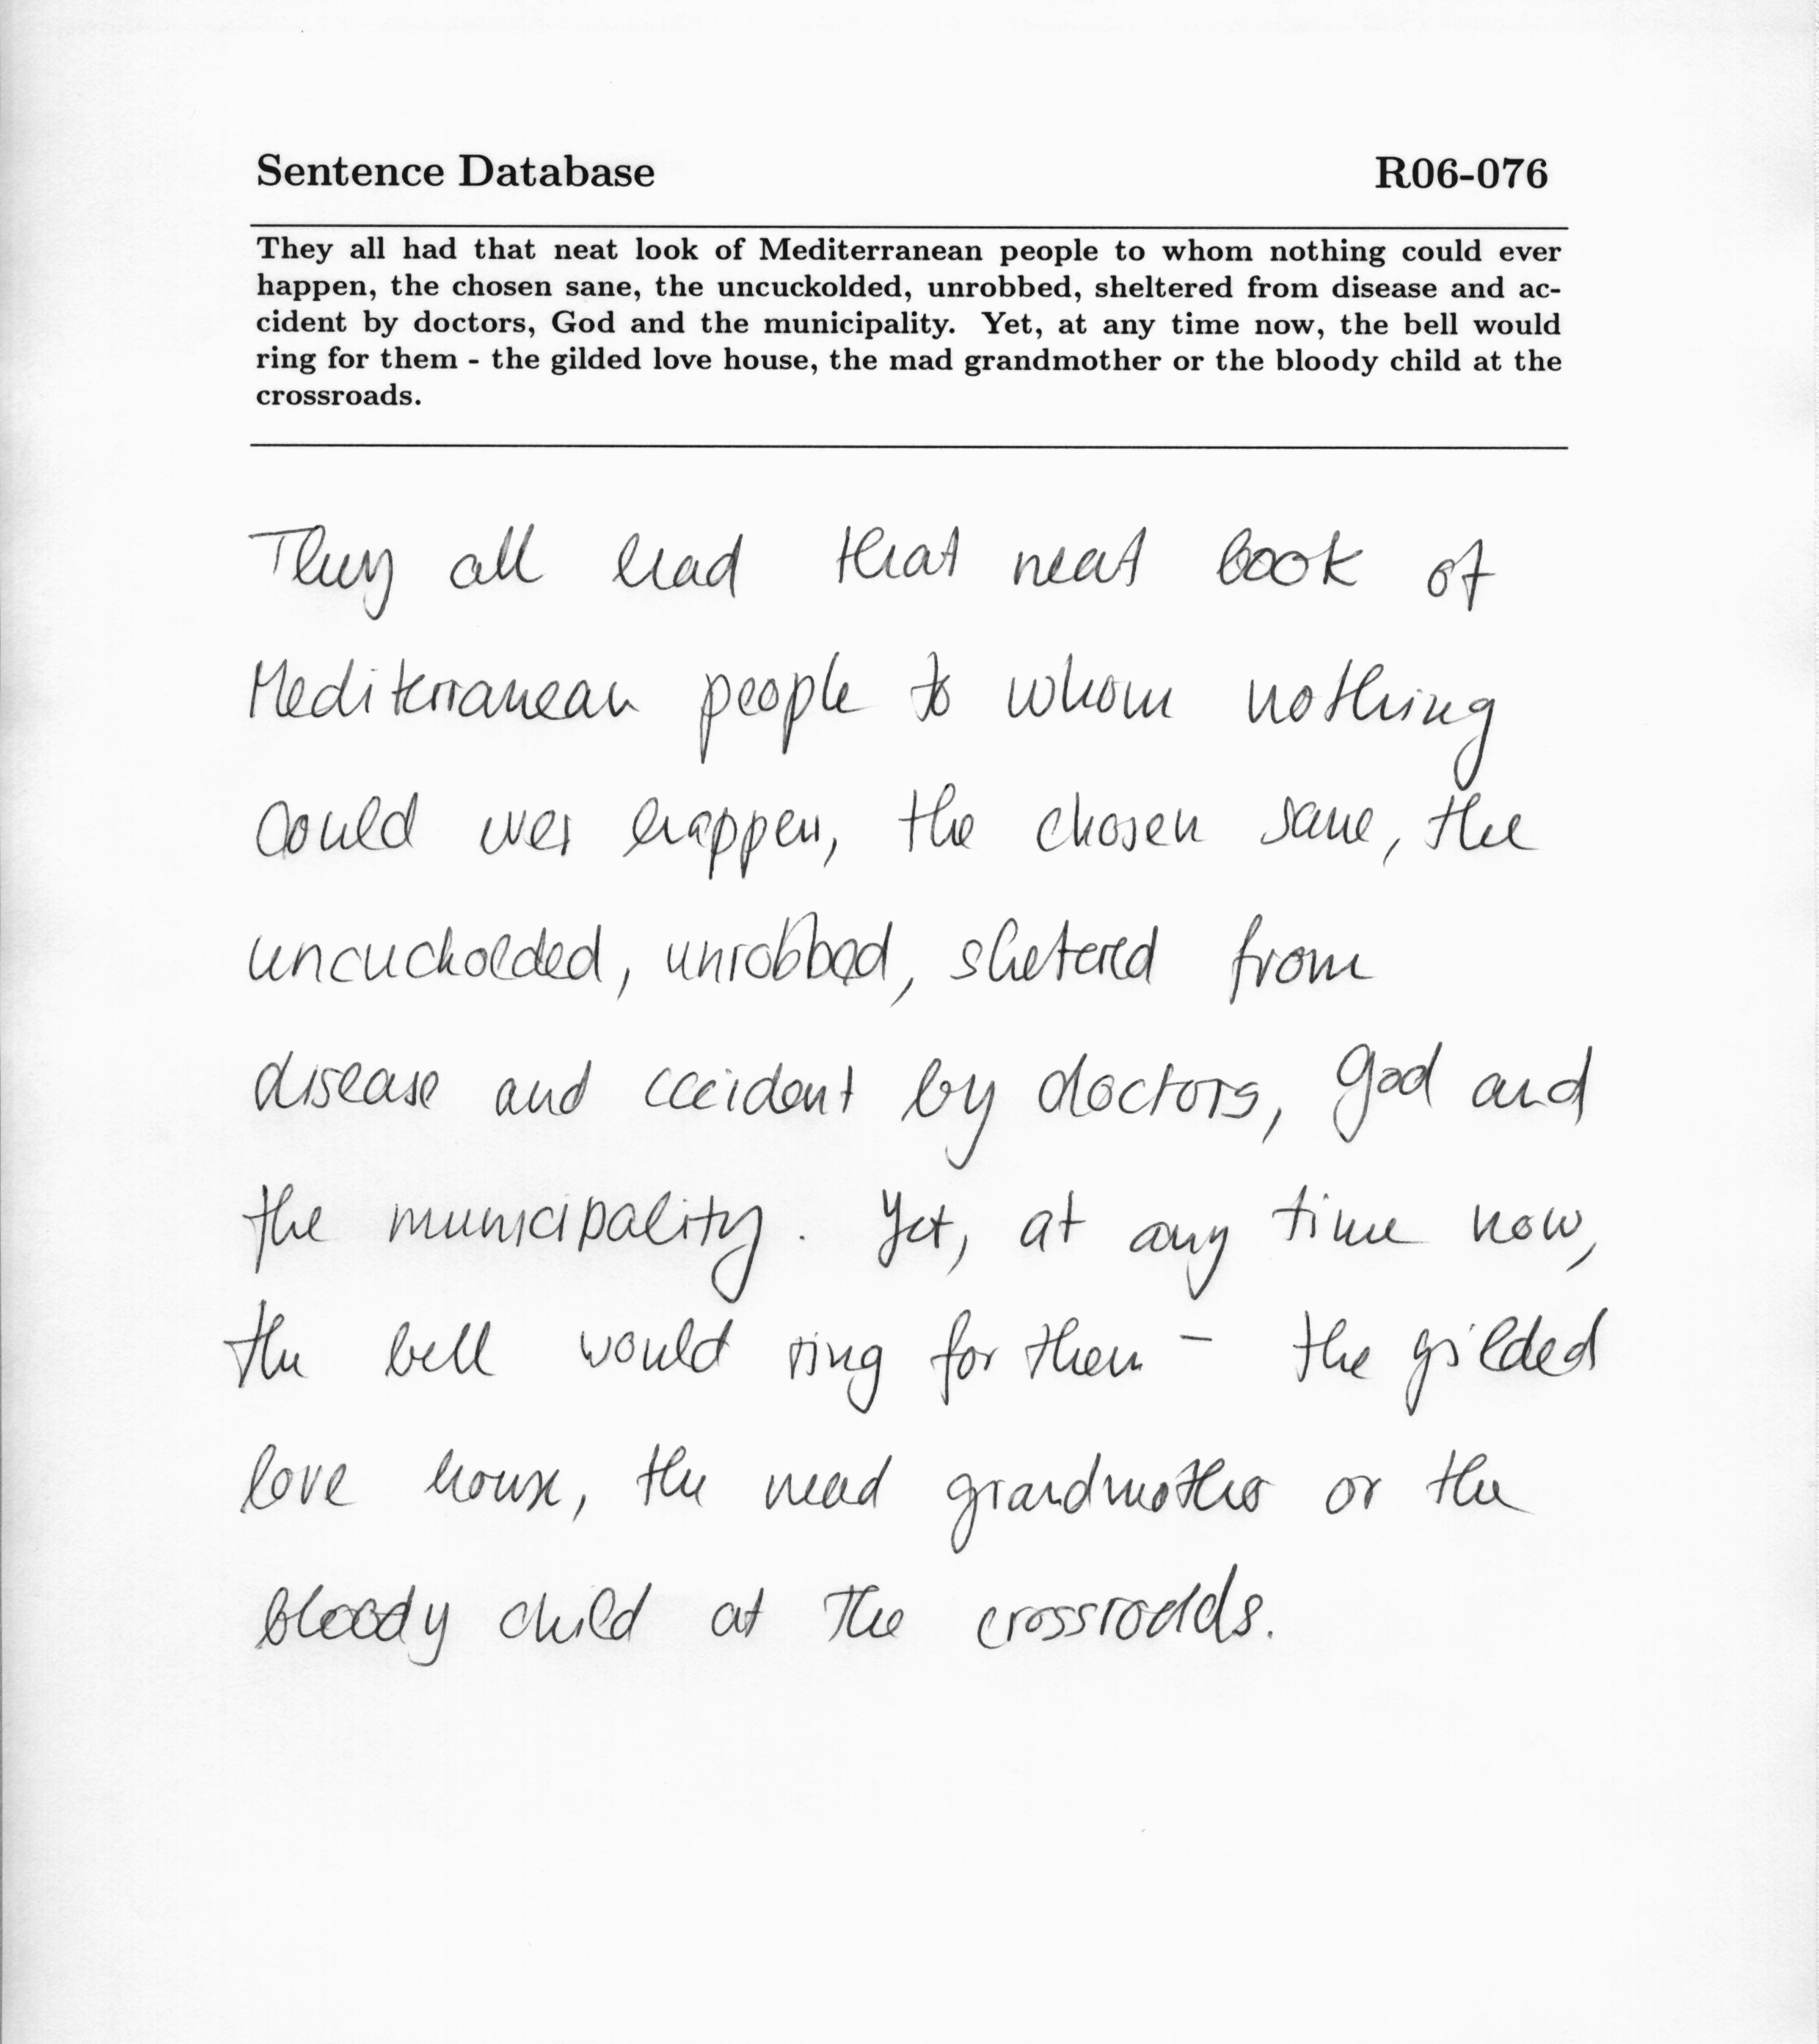 Sentence Database R06-076
They all had that neat look of Mediterranean people to whom nothing could ever
happen, the chosen sane, the uncuckolded, unrobbed, sheltered from disease and ac-
cident by doctors, God and the municipality. Yet, at any time now, the bell would
ring for them - the gilded love house, the mad grandmother or the bloody child at the
crossroads.
They all had that neat look of
Mediterranean people to whom nothing
could ever happen, the chosen sane, the
uncuckolded, unrobbed, shetered from
disease and accident by doctors, God and
the municipality. Yet, at any time now,
the bell would ring for them - the gilded
love house, the mad grandmother or the
bloody child at the crossroads.